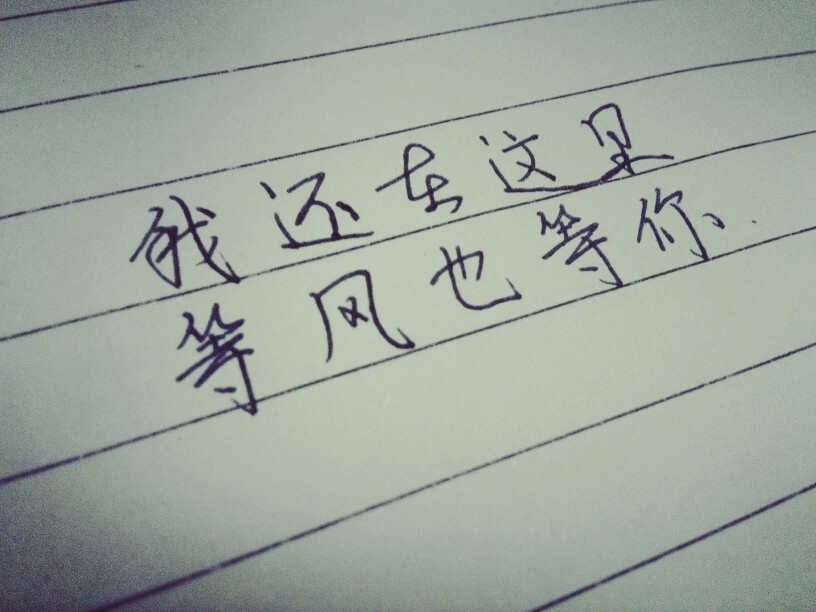 我还在这里
等风也等你.